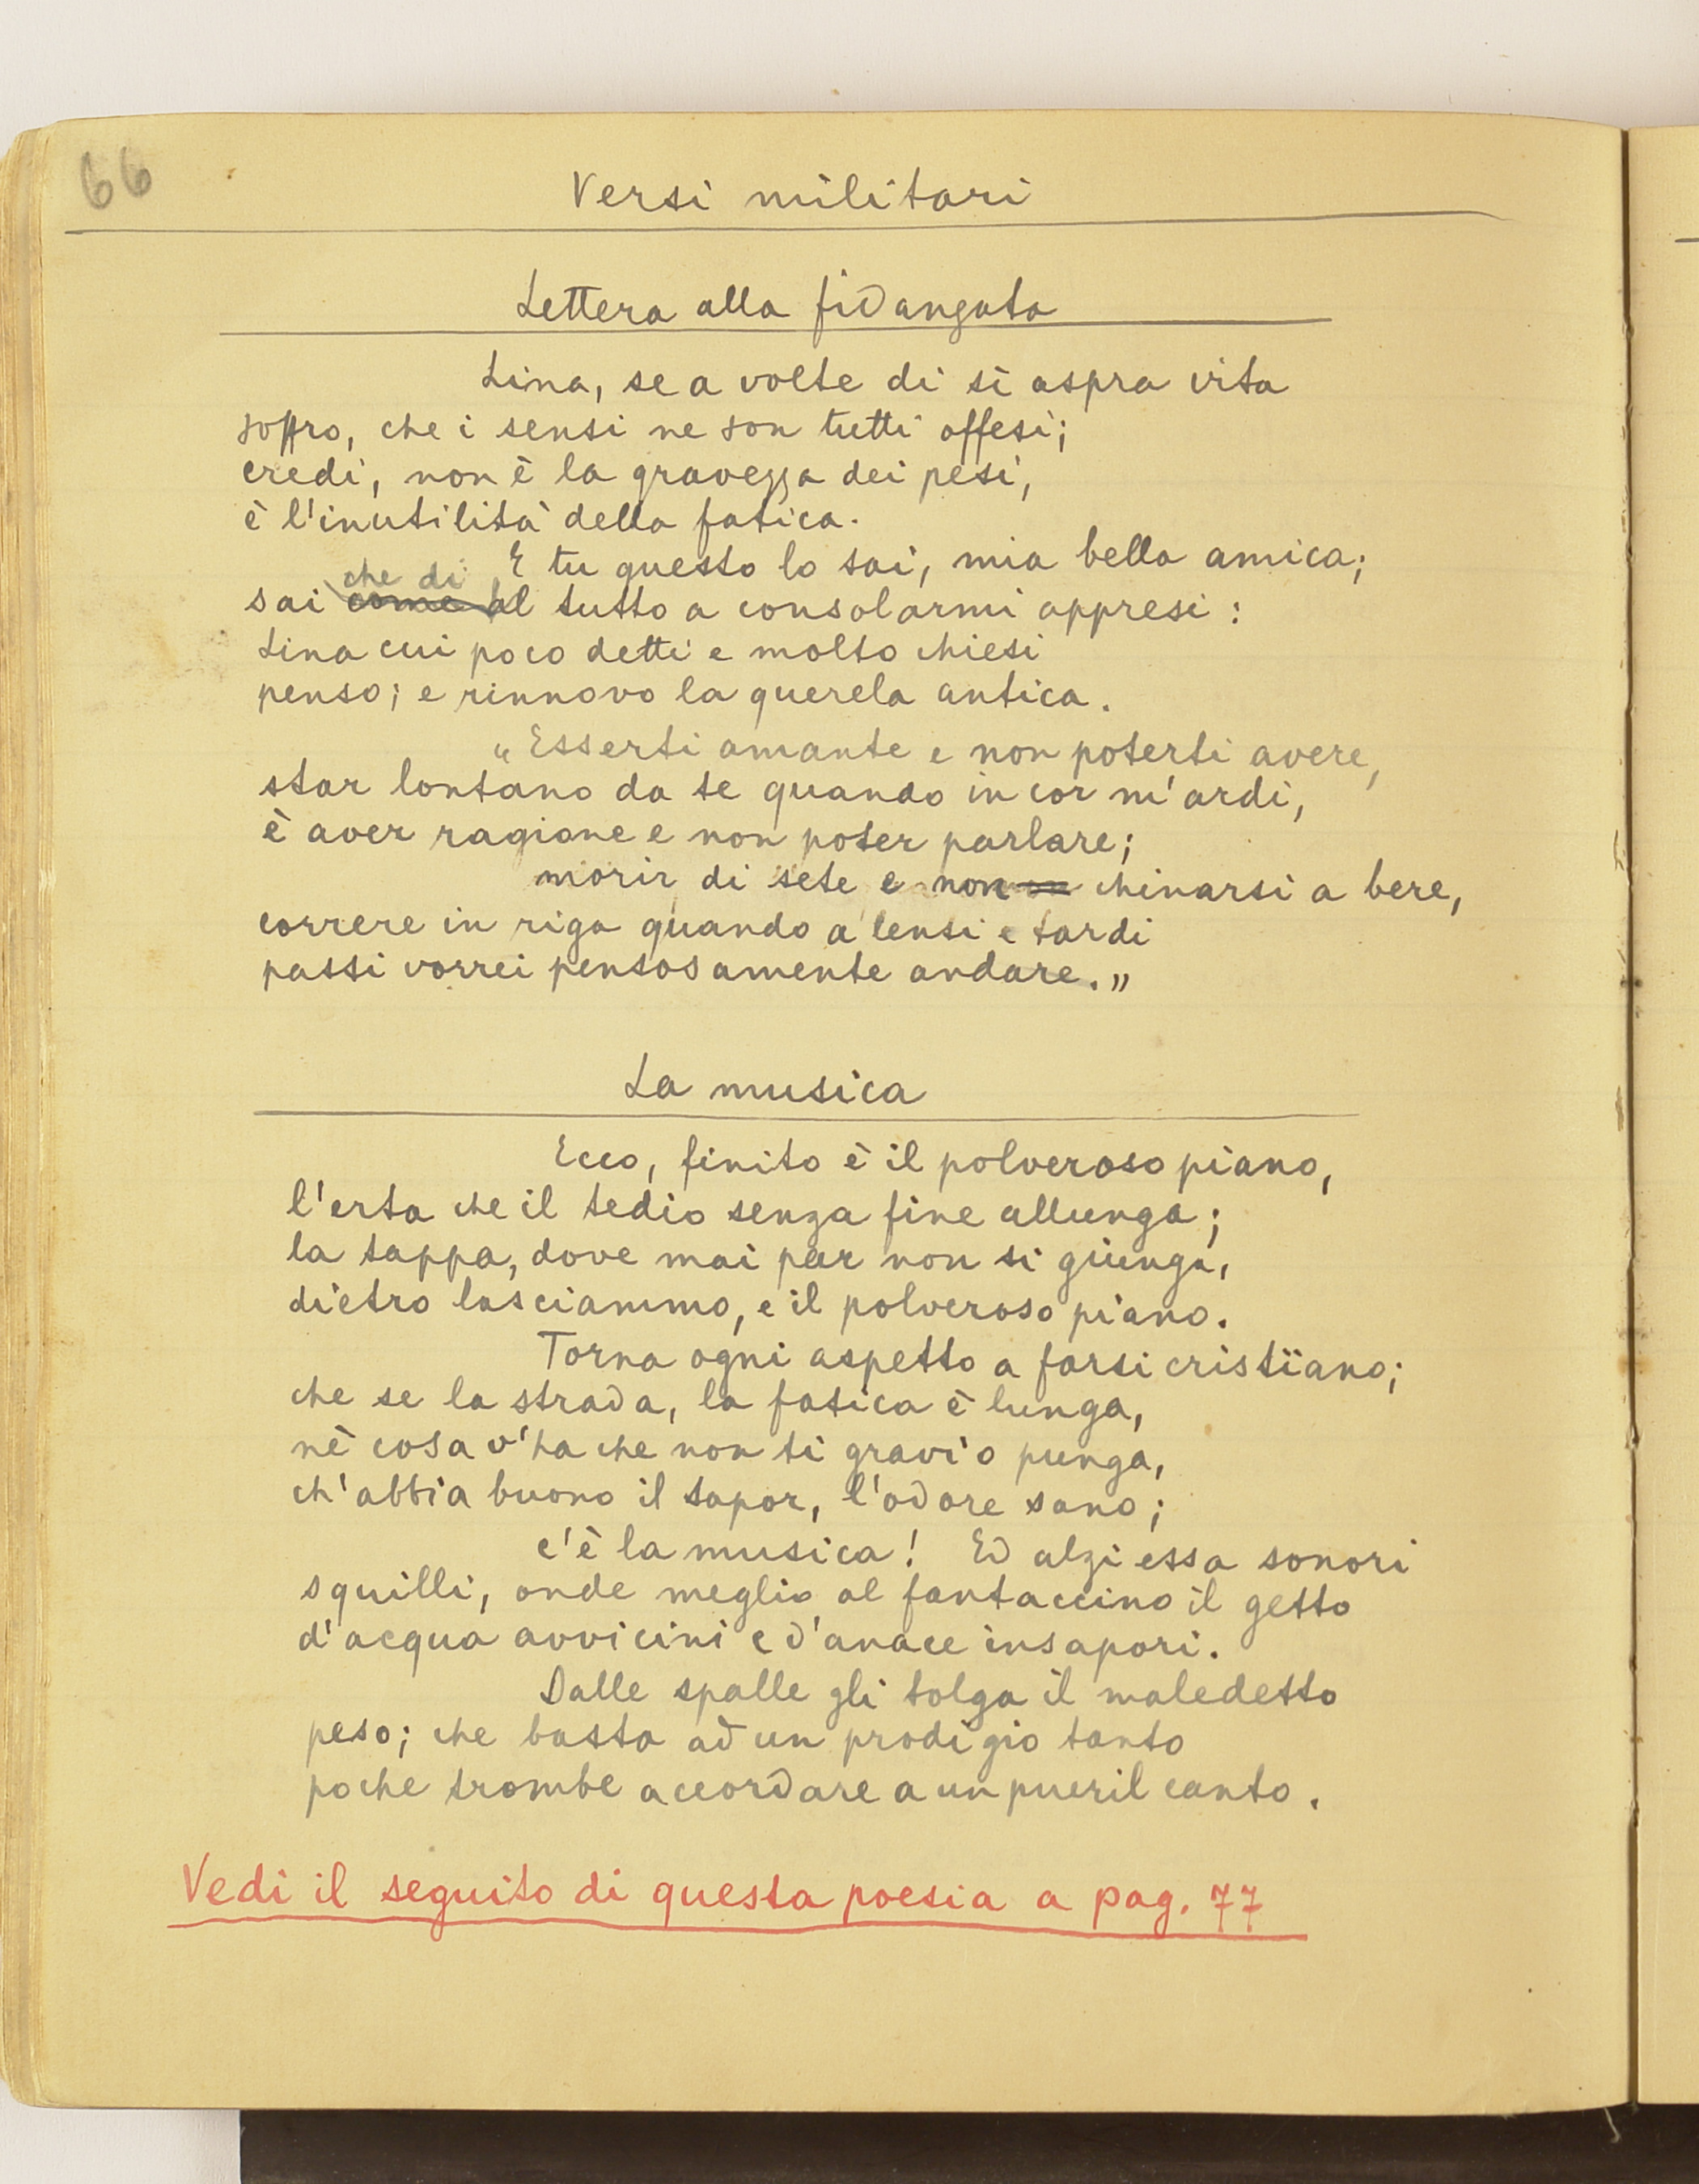 66
Versi militari
Lettera alla fidanzata
Lina, se a volte di sì aspra vita
soffro, che i sensi ne son tutti offesi;
credi, non è la gravezza dei pesi,
è l'inutilità della fatica.
E tu questo lo sai, mia bella amica;
che di
sai come al tutto a consolarmi appresi:
Lina cui poco detti e molto chiesi
penso; e rinnovo la querela antica.
"Esserti amante e non poterti avere,
star lontano da te quando in cor m'ardi,
è aver ragione e non poter parlare;
morir di sete e non chinarsi a bere,
correre in riga quando a lenti e tardi
passi vorrei pensosamente andare."
La musica
Ecco, finito è il polveroso piano,
l'erta che il tedio senza fine allunga;
la tappa, dove mai par non si giunga,
dietro lasciammo, e il polveroso piano.
Torna ogni aspetto a farsi cristïano;
che se la strada, la fatica è lunga,
nè cosa v'ha che non ti gravi o punga,
ch'abbia buono il sapor, l'odore sano;
c'è la musica! Ed alzi essa sonori
squilli, onde meglio al fantaccino il getto
d'acqua avvicini e d'anace insapori.
Dalle spalle gli tolga il maledetto
peso; che basta ad un prodigio tanto
poche trombe accordare a un pueril canto.
Vedi il seguito di questa poesia a pag. 77